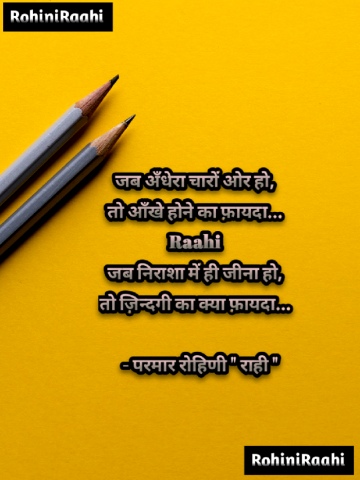 RohiniRaahi
जब अँधेरा चारों ओर हो,
तो आँखे होने का फ़ायदा...
Raahi
जब निराशा में ही जीना हो,
तो ज़िन्दगी का क्या फ़ायदा...
- परमार रोहिणी " राही "
RohiniRaahi